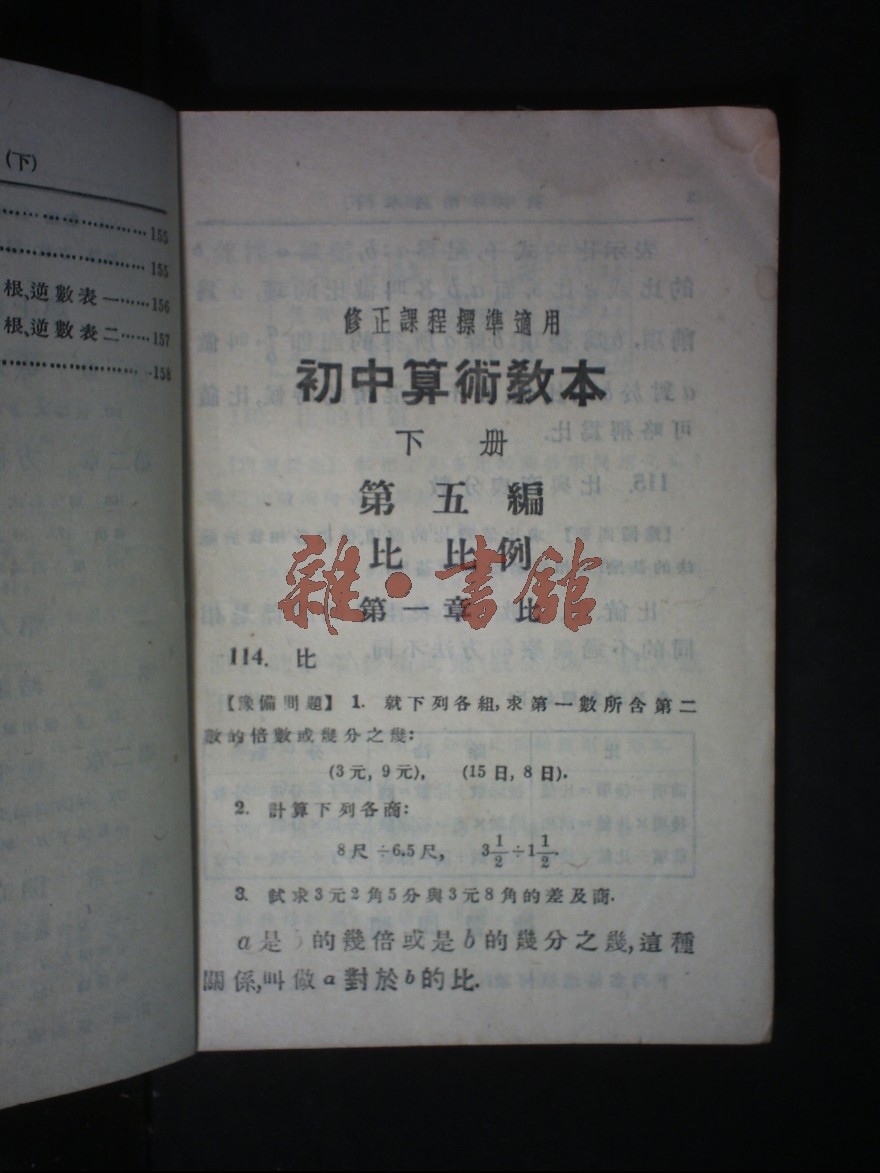 (下)
155
155
根、逆數表一……156
根、逆數表二……157
158
修正課程標準適用
初中算術教本
下册
第五編
比 比例
第一章 比
雜·書館
114. 比
【豫備問題】 1. 就下列各組,求第一數所含第二
數的倍數或幾分之幾:
(3元, 9元), (15日, 8日).
2. 計算下列各商:
8尺÷6.5尺, 3 1/2 ÷ 1 1/2.
3. 試求3元2角5分與3元8角的差及商.
a是 的幾倍或是b的幾分之幾,這種
關係,叫做a對於b的比.